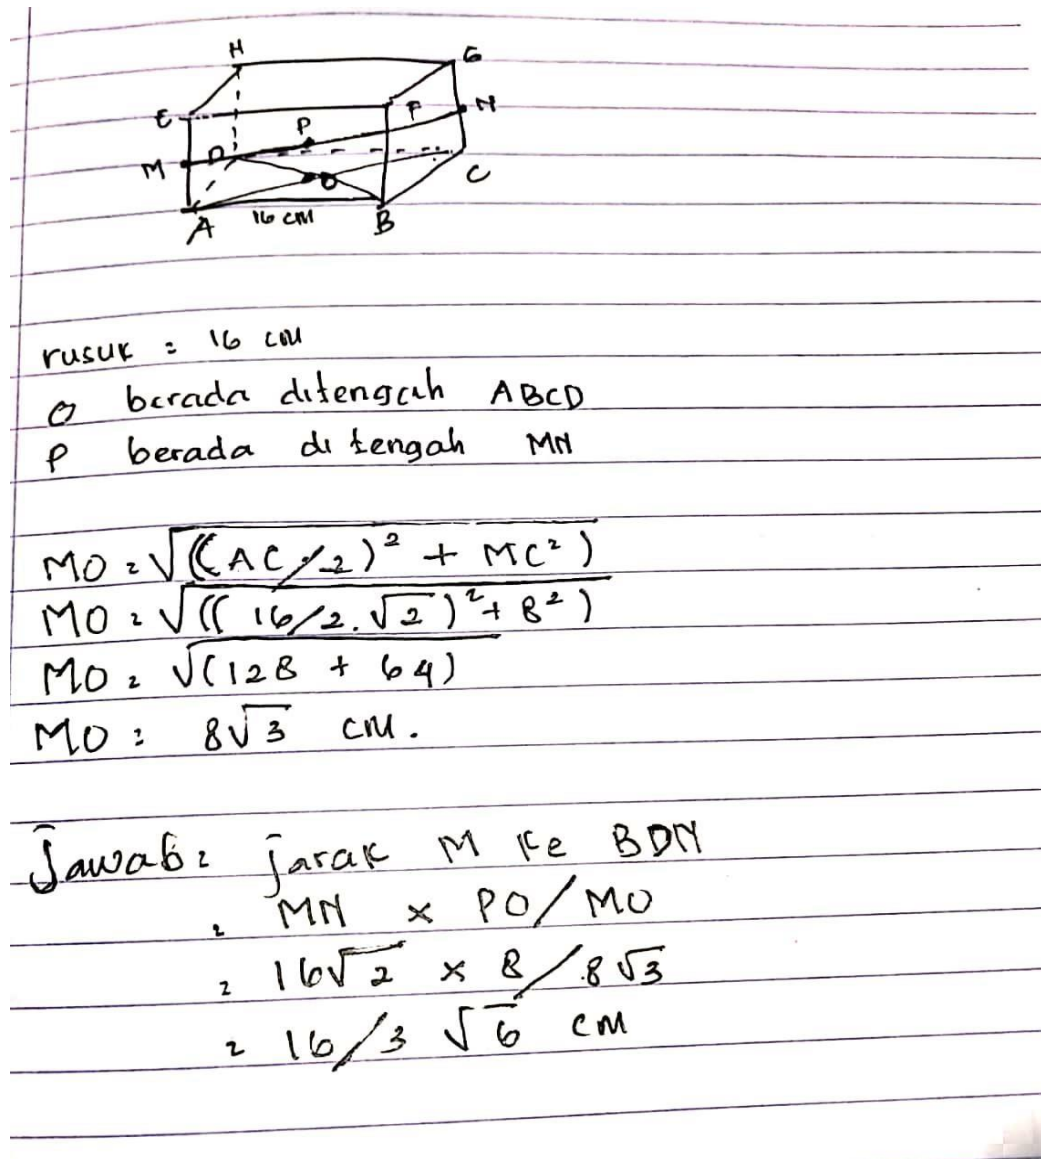 H
G
E
F
N
P
M
D
O
C
A
16 cm
B
rusuk = 16 cm
O berada ditengah ABCD
P berada di tengah MN
MO = √((AC/2)² + MC²)
MO = √((16/2.√2)² + 8²)
MO = √(128 + 64)
MO = 8√3 cm.
Jawab = jarak M ke BDN
= MN × PO/MO
= 16√2 × 8/8√3
= 16/3 √6 cm